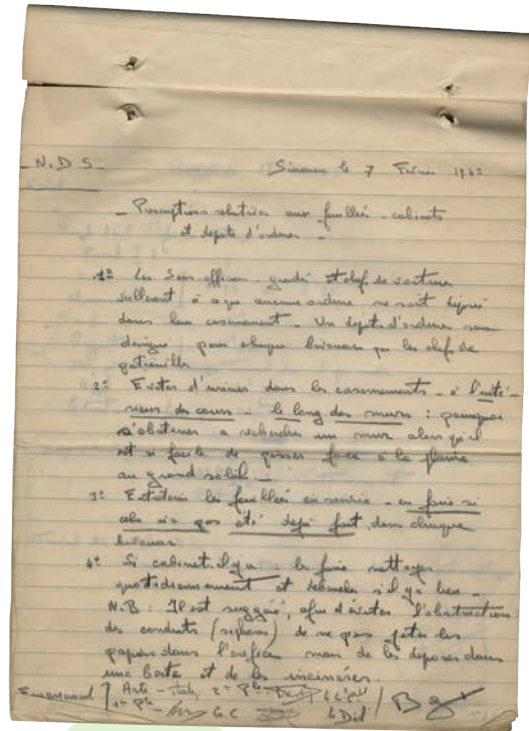 N.D.S. le 7 Février 194
- Prescriptions relatives aux feuillées - cabinets
et dépôts d'ordures -
1° Les Sous-officiers gradés et chef de voiture
veilleront à ce que aucune ordure ne soit déposée
dans leur casernement - Un dépôt d'ordures sera
désigné pour chaque bivouac par les chefs de
patrouilles
2° Eviter d'uriner dans les casernements - à l'inté-
rieur des cours - le long des murs : pourquoi
s'obstiner a rechercher un mur alors qu'il
est si facile de pisser face à la plaine
au grand soleil. -
3° Entretenir les feuillées en service - en faire si
cela n'a pas été déjà fait, dans chaque
bivouac
4° Si cabinet il y a : les faire nettoyer
quotidiennement et déboucher s'il y a lieu -
N.B : Il est suggéré, afin d'éviter l'obstruction
des conduits (siphons) de ne pas jeter les
papiers dans l'orifice mais de les déposer dans
une boite et de les incinérer.